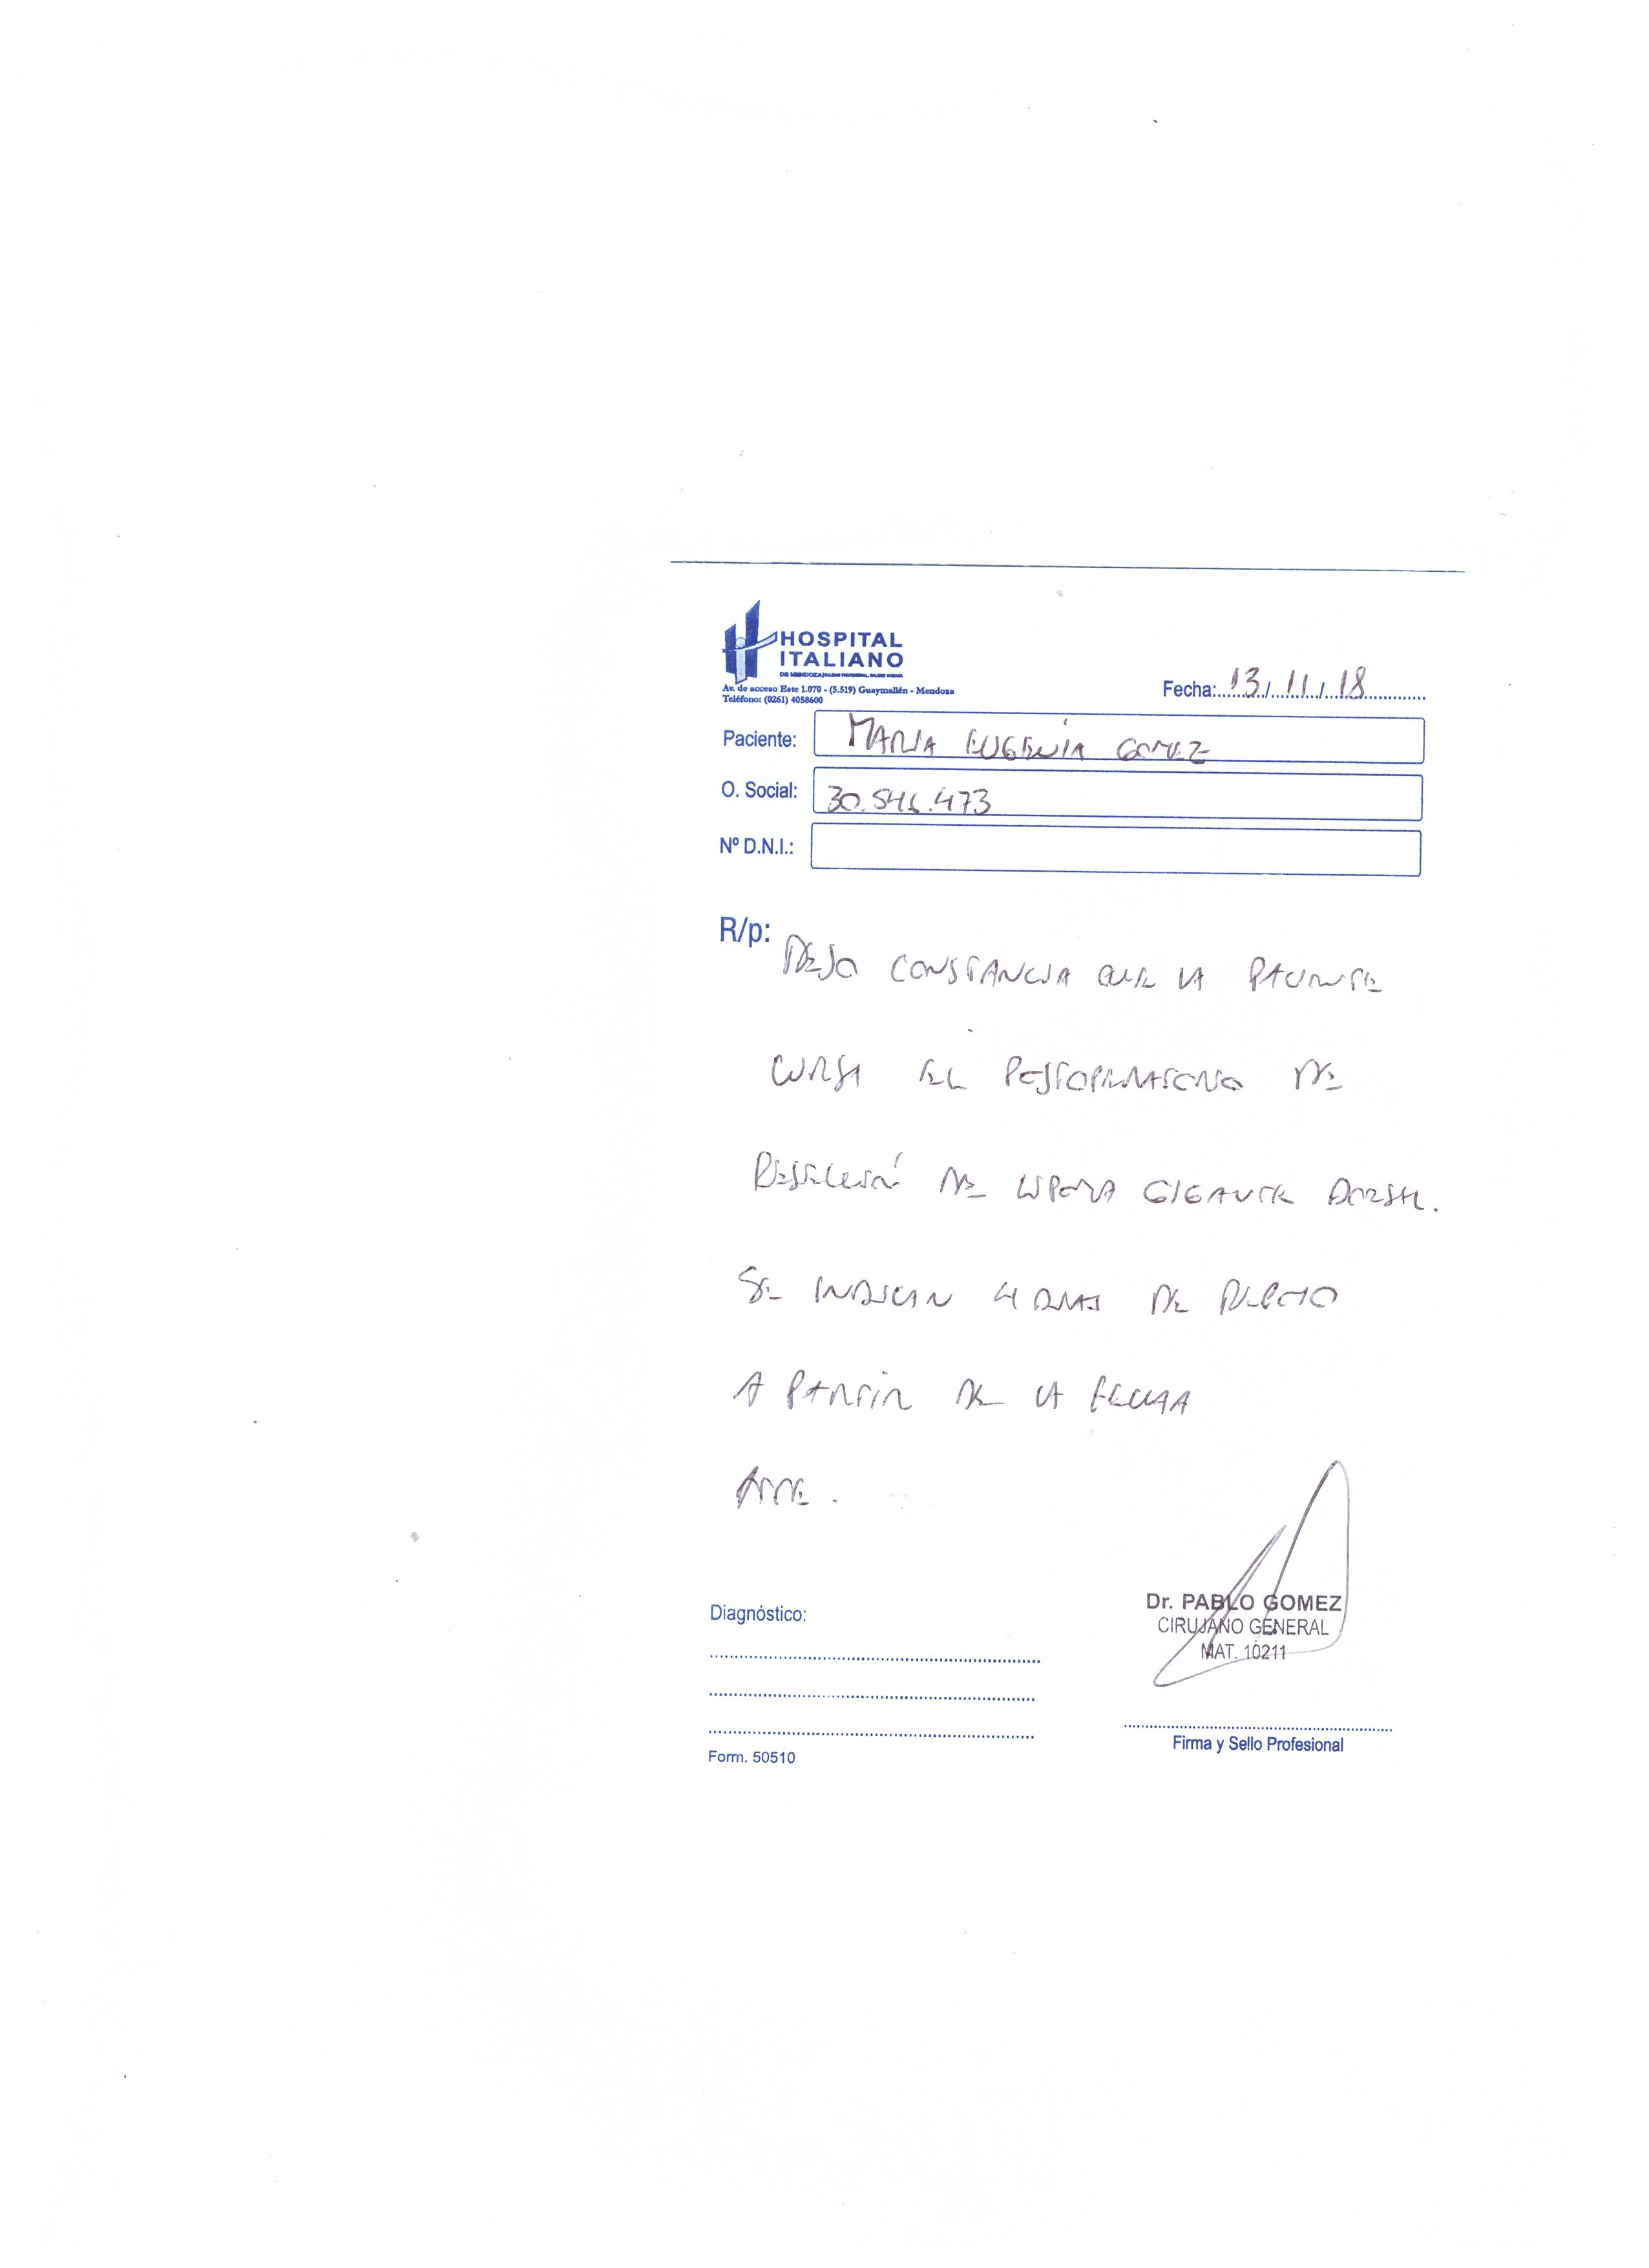 HOSPITAL
ITALIANO
Av. de acceso Este 1.070 - (5.519) Guaymallén - Mendoza
Teléfono: (0261) 4058600
Fecha: 13/11/18
Paciente: MARIA EUGENIA GOMEZ
O. Social: 30.546.473
Nº D.N.I.:
R/p:
DEJO CONSTANCIA QUE LA PACIENTE
CURSA EL POSTOPERATORIO DE
RESECCIÓN DE LIPOMA GIGANTE DORSAL.
SE INDICAN 4 DIAS DE REPOSO
A PARTIR DE LA FECHA
ATTE.
Dr. PABLO GOMEZ
CIRUJANO GENERAL
MAT. 10211
Diagnóstico:
Firma y Sello Profesional
Form. 50510